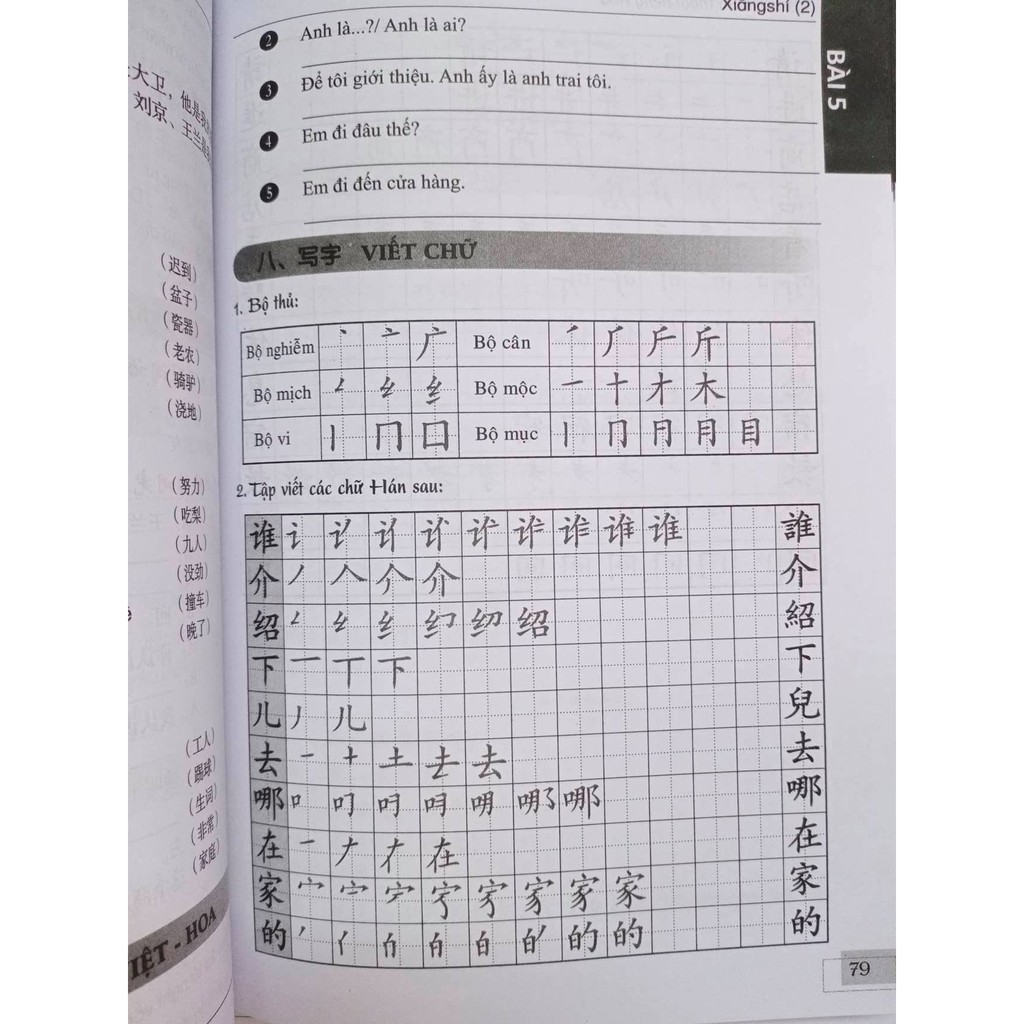 Xiāngshí (2)
BÀI 5
2 Anh là...?/ Anh là ai?
3 Để tôi giới thiệu. Anh ấy là anh trai tôi.
4 Em đi đâu thế?
5 Em đi đến cửa hàng.
大卫，他是我
刘京、王兰是
(迟到)
(盆子)
(瓷器)
(老农)
(骑驴)
(浇地)
(努力)
(吃梨)
(九人)
(没劲)
(撞车)
(晚了)
(工人)
(踢球)
(生词)
(非常)
(家庭)
IỆT - HOA
八、写字 VIẾT CHỮ
1. Bộ thủ:
Bộ nghiễm 丶 亠 广 Bộ cân 斤
Bộ mịch 糹 Bộ mộc 一 十 才 木
Bộ vi 丨 冂 口 Bộ mục 丨 冂 月 目
2. Tập viết các chữ Hán sau:
谁 讠 谁 谁 誰
介 丿 人 介 介
绍 绍 紹
下 一 丅 下 下
儿 丿 儿 兒
去 一 十 土 去 去
哪 口 叨 哪 哪
在 一 ナ 才 在 在
家 宀 家 家
的 丿 亻 白 的 的 的
79